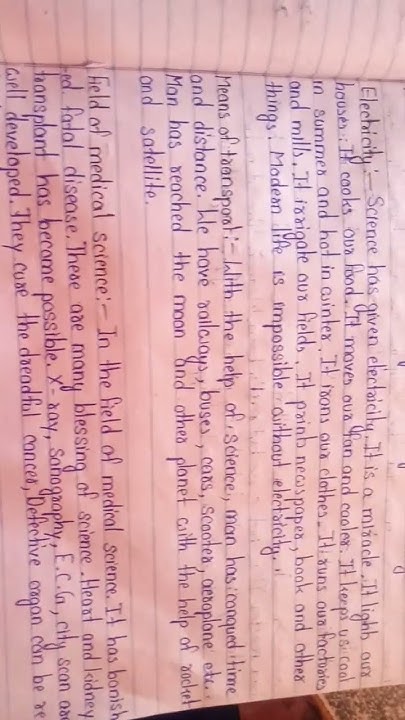 Electricity:- Science has given electricity. It is a miracle. It lights our
houses. It cooks our food. It moves our fan and cooler. It keeps us cool
in summer and hot in winter. It irons our clothes. It runs our factories
and mills. It irrigate our fields. It paints newspaper, book and other
things. Modern life is impossible without electricity.
Means of transport:- With the help of science, man has conqued time
and distance. We have railways, buses, cars, scooter aeroplane etc.
Man has reached the moon and other planet with the help of rocket
and satellite.
Field of medical science:- In the field of medical science. It has banish
ed fatal disease. There are many blessing of science. Heart and kidney
transplant has become possible. X-ray, Sonography, E.C.G, city scan are
well developed. They cure the dreadful cancer, Defective organ can be re